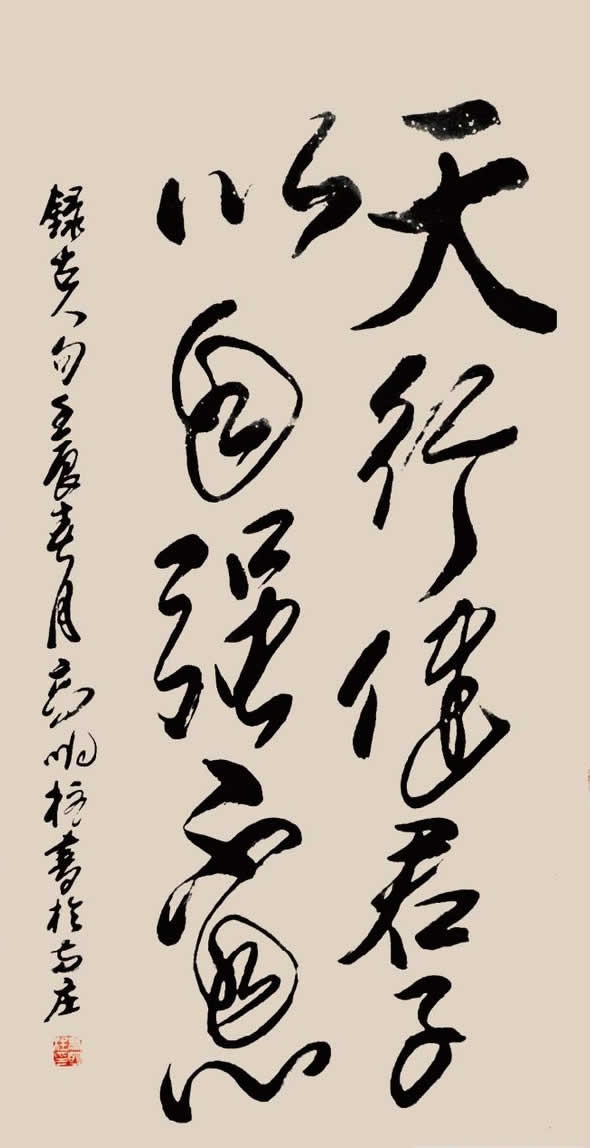 天行健君子
以自强不息
録古人句壬辰春月高明柱書於南庄